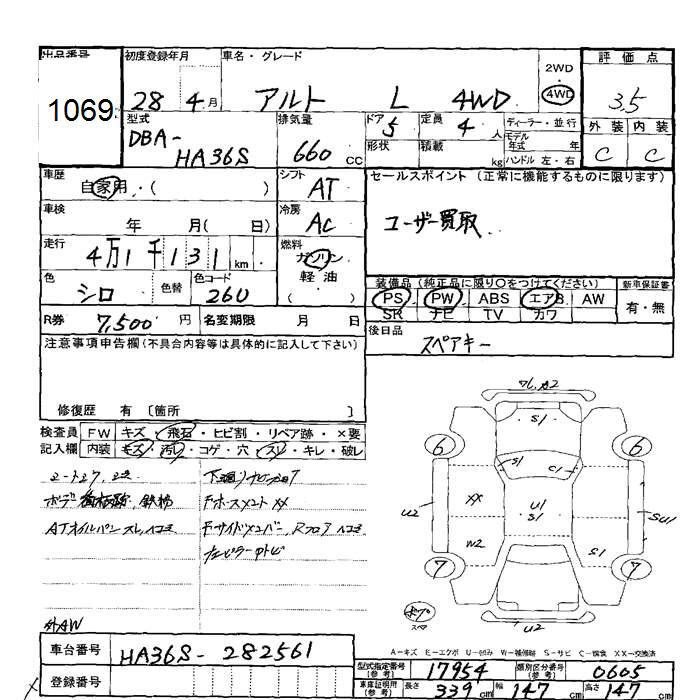 出品番号 1069
初度登録年月 28年 4月
車名・グレード アルト L 4WD
2WD ・ 4WD
評価点 3.5
型式 DBA-HA36S
排気量 660 CC
ドア 5
定員 4 人
形状
積載 kg
ディーラー・並行
モデル年式 年
ハンドル 左・右
外装 内装
C C
車歴 自家用・( )
シフト AT
車検 年 月( 日)
冷房 AC
走行 4万1千131 km
燃料 ガソリン 軽油 ( )
色 シロ
色替
色コード 26U
セールスポイント(正常に機能するものに限ります)
ユーザー買取
装備品(純正品に限り○をつけてください)
新車保証書
PS PW ABS エアB. AW
SR ナビ TV カワ
有・無
R券 7,500 円
名変期限 月 日
後日品 スペアキー
注意事項申告欄(不具合内容等は具体的に記入して下さい)
修復歴 有 〔箇所 〕
検査員 FW キズ・飛石・ヒビ割・リペア跡・×要
記入欄 内装 キズ・汚れ・コゲ・穴・スレ・キレ・破レ
下廻りサビ
鉄粉
ATオイルパン スレ、ヘコミ
外AW
A2
S1
6 6
S1 C1
XX
U1
S1
U2
SU1
W2
S1
7 7
U2
A-キズ E-エクボ U-凹み W-補修跡 S-サビ C-腐食 XX-交換済
車台番号 HA36S-282561
登録番号
型式指定番号(参考) 17954
類別区分番号(参考) 0605
車庫証明用(参考) 長さ 339 cm 幅 147 cm 高さ 147 cm